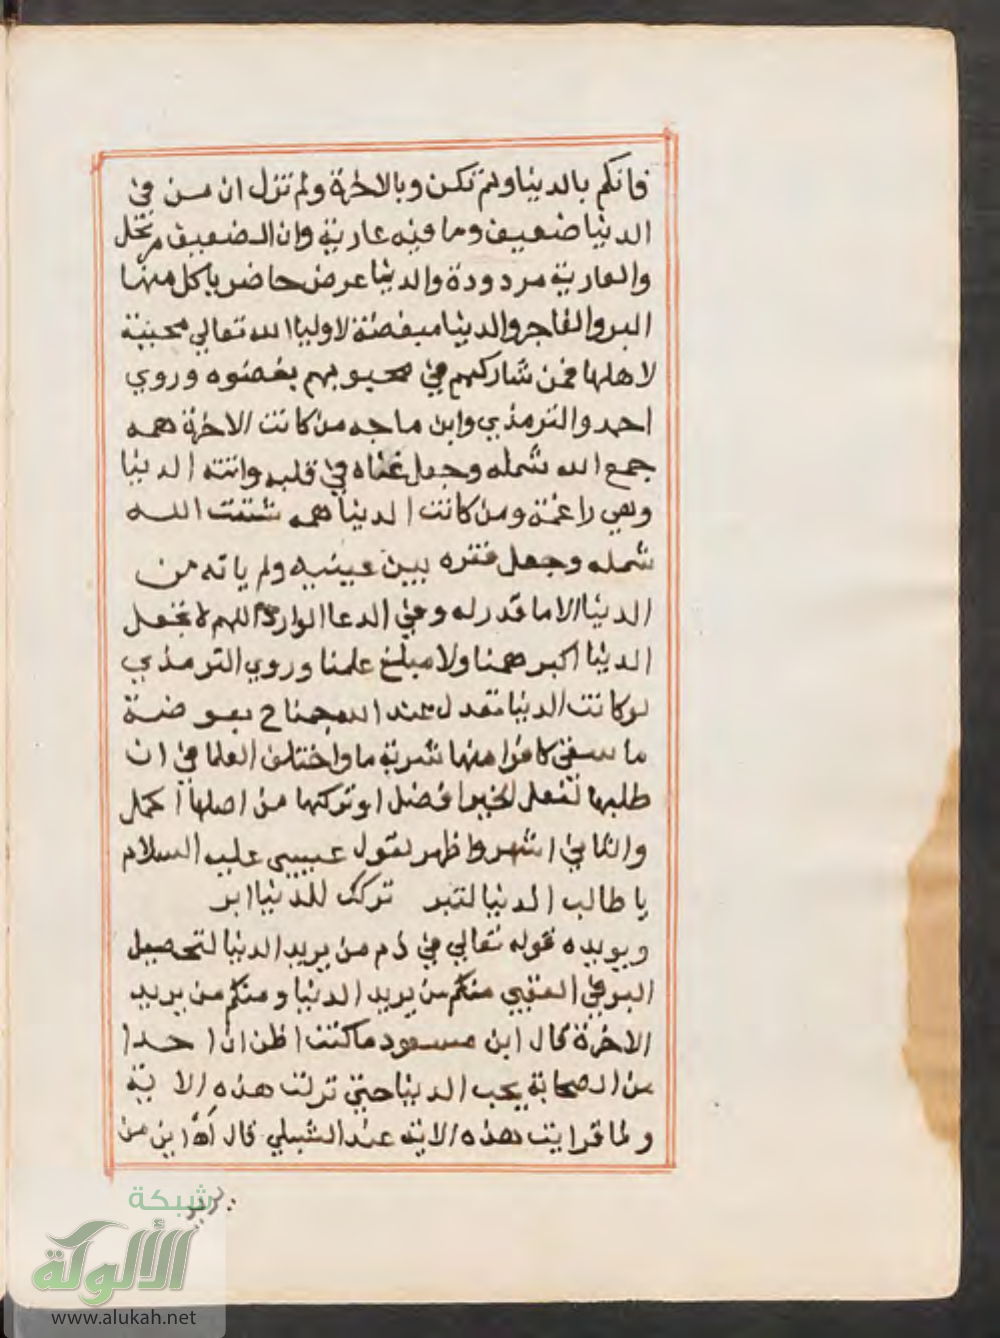 فانكم بالدنيا ولم تكن وبالاخرة ولم تزل ان من في
الدنيا ضعيف وما فيه عارية وان الضعيف مرتحل
والعارية مردودة والدنيا عرض حاضر ياكل منها
البر والفاجر والدنيا مبغضة لاوليا الله تعالي محببة
لاهلها فمن شاركهم في محبوبهم بغضوه وروي
احمد والترمذي وابن ماجه من كانت الاخرة همه
جمع الله شمله وجعل غناه في قلبه واتته الدنيا
وهي راغمة ومن كانت الدنيا همه شتت الله
شمله وجعل فقره بين عينيه ولم ياته من
الدنيا الا ما قدر له وفي الدعا الوارد اللهم لا تجعل
الدنيا اكبر همنا ولا مبلغ علمنا وروي الترمذي
لو كانت الدنيا تعدل عند الله جناح بعوضة
ما سقي كافرا منها شربة ما واختلف العلما في ان
طلبها لفعل الخير افضل او تركها من اصلها اكمل
والثاني اشهر واظهر لقول عيسي عليه السلام
يا طالب الدنيا لتبر تركك للدنيا ابر
ويويده قوله تعالي في ذم من يريد الدنيا لتحصيل
البر في العقبي منكم من يريد الدنيا ومنكم من يريد
الاخرة قال ابن مسعود ما كنت اظن ان احدا
من الصحابة يحب الدنيا حتي نزلت هذه الاية
ولما قرايت هذه الاية عند الشبلي قال اه اين من
يريد
شبكة
الألوكة
www.alukah.net